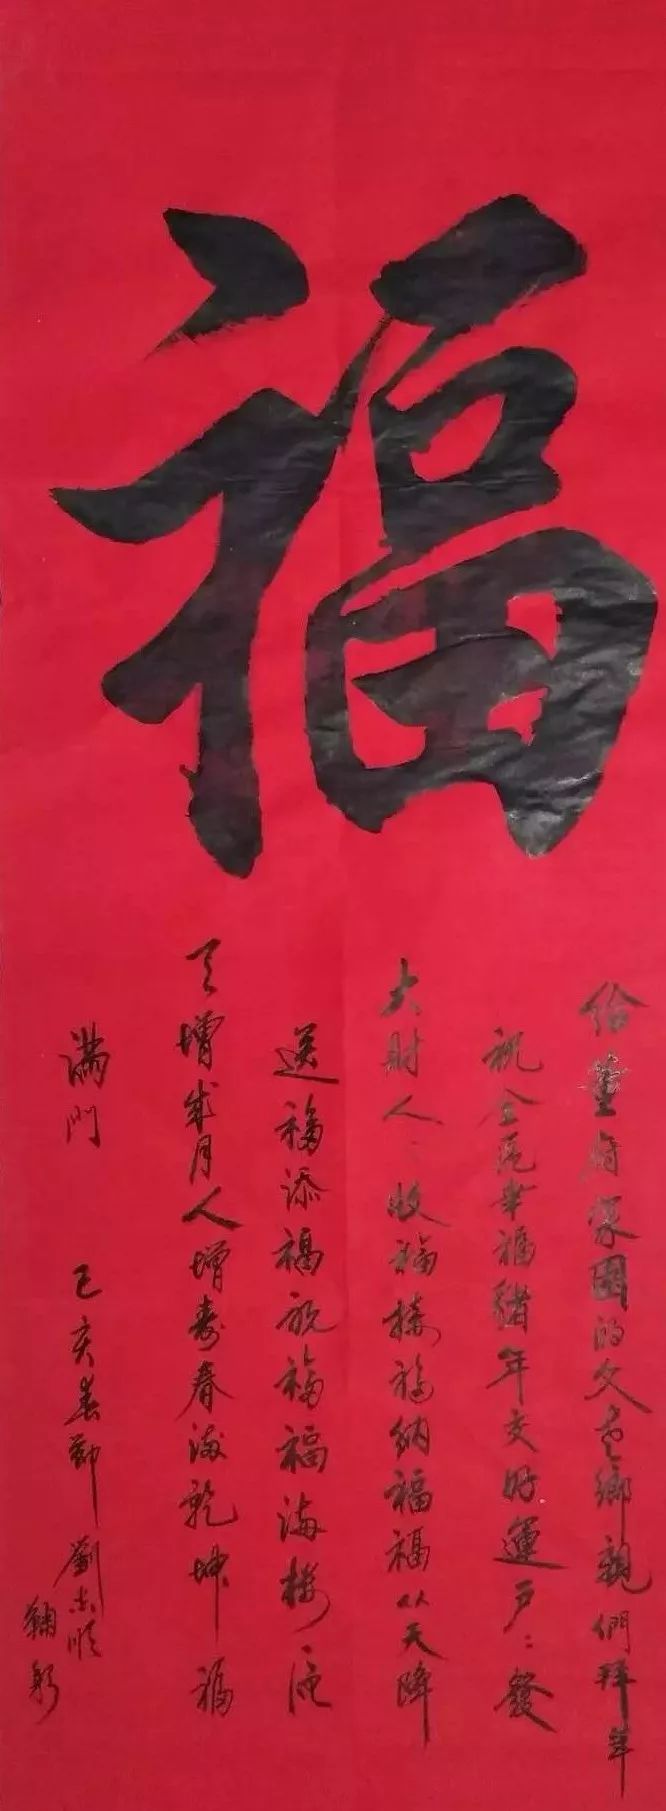 福
给董府家園的父老鄉親們拜年
祝全區幸福豬年交好運戶:發
大財人:收福接福納福福从天降
送福添福祝福福滿樓區
天增歲月人增壽春滿乾坤福
滿門 己亥春節 劉志順
鞠躬